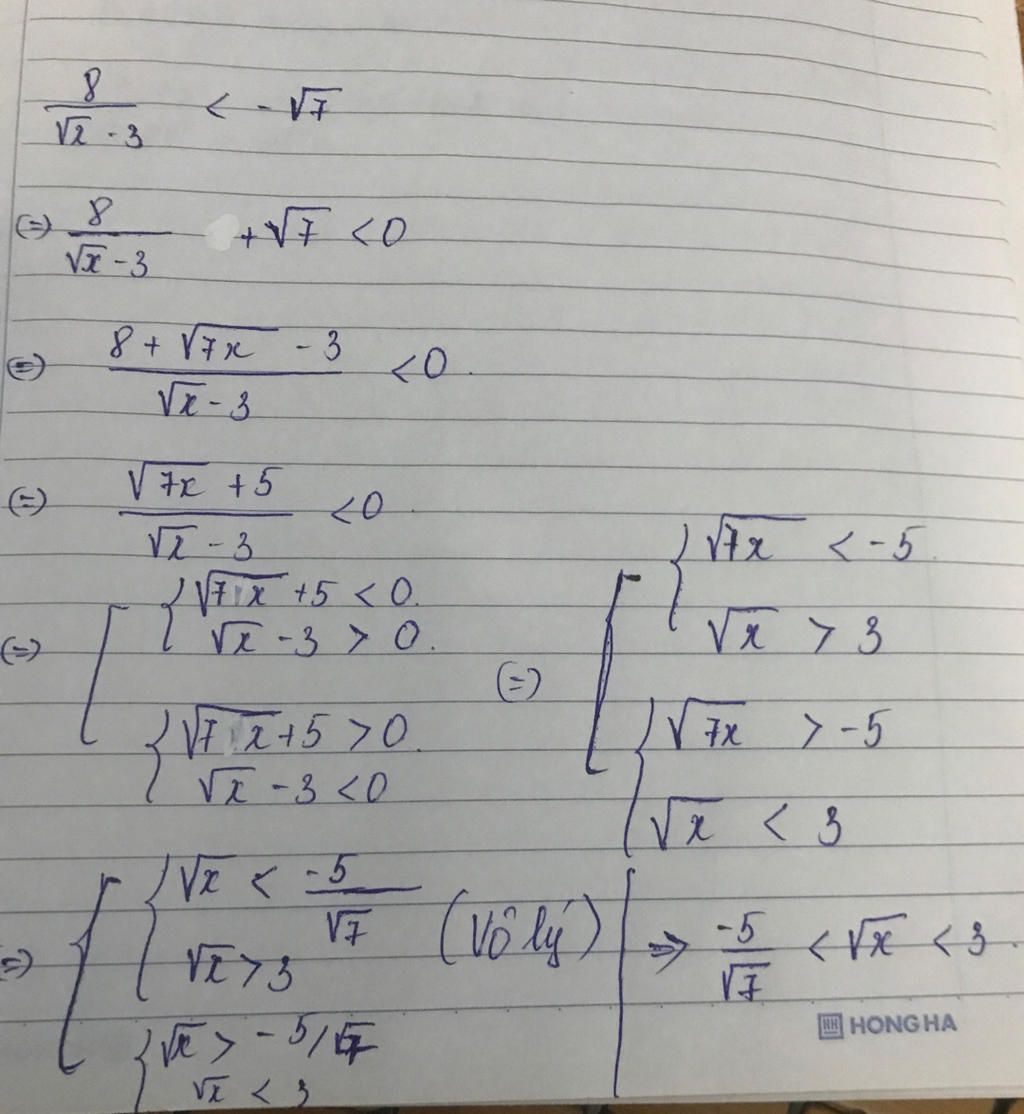 8/(√x - 3) < -√7
(=) 8/(√x - 3) + √7 < 0
(=) (8 + √7x - 3)/(√x - 3) < 0.
(=) (√7x + 5)/(√x - 3) < 0.
(=) [ { √7x + 5 < 0.
√x - 3 > 0.
{ √7x + 5 > 0.
√x - 3 < 0
(=) [ { √7x < -5.
√x > 3
{ √7x > -5
√x < 3
(=) [ { √x < -5/√7
√x > 3 (Vô lý)
{ √x > -5/√7
√x < 3
=> -5/√7 < √x < 3.
HONG HA